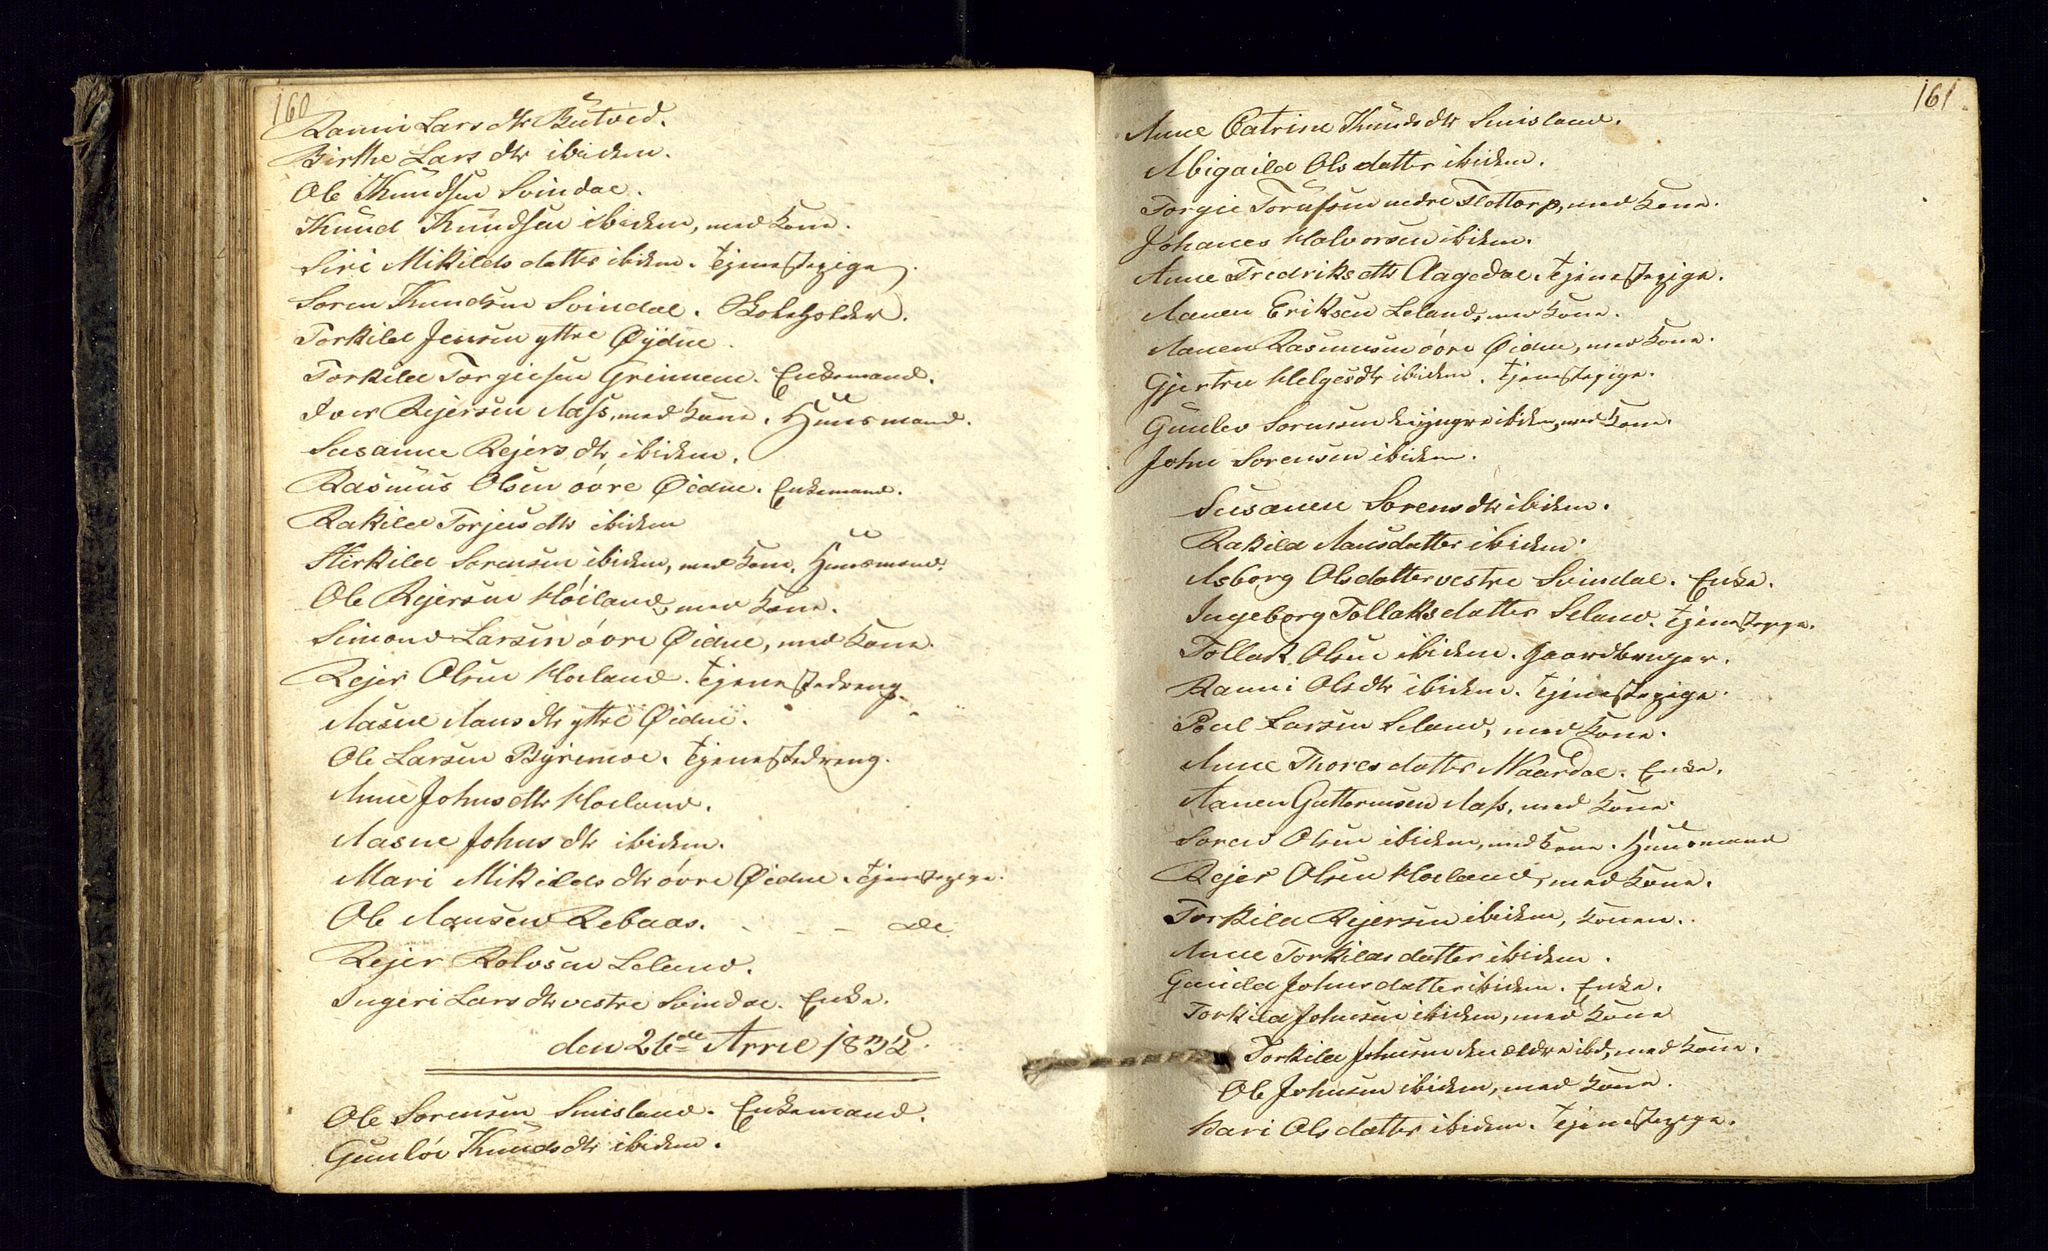 160
Ranni Lars dtr Butved.
Birthe Lars dtr ibidem.
Ole Knudsen Svindal.
Knud Knudsen ibidem, med Kone.
Siri Mikilds datter ibidem. Tjenestepige.
Soren Knudsen Svindal. Skoleholder.
Torkild Jensen yttre Øydne.
Torkild Torgiesen Grinnem. Enkemand.
Iver Rejersen Aass, med Kone. Huusmand.
Susanne Rejers dtr ibidem.
Rasmus Olsen övre Øidne. Enkemand.
Rakild Torjus dtr ibidem
Hirkild Sorensen ibidem, med Kone, Huusmand.
Ole Rejersen Höiland, med Kone.
Simond Larsen övre Øidne, med Kone.
Rejer Olsen Hoiland. Tjenestedreng.
Aasne Aans dtr yttre Øidne.
Ole Larsen Byrimoe. Tjenestedreng.
Anne Johns dtr Hoiland.
Aasne Johns dtr ibidem.
Mari Mikilds dtr övre Øidne. Tjenestepige.
Ole Aansen Rebaas. - - - de
Rejer Rolvsen Leland.
Ingeri Lars dtr vestre Svindal. Enke.
den 26de April 1832.
Ole Sorensen Smisland. Enkemand.
Gunlöi Knuds dtr ibidem.
161
Anne Catrine Knuds dtr Smisland.
Abigaild Olsdatter ibidem.
Torgie nedre Flottorp, med Kone.
Johanes Halvorsen ibidem.
Anne Fredriks dtr Aagedal. Tjenestepige.
Aanen Eriksen Leland, med Kone.
Aanen Rasmusen övre Øidne, med Kone.
Gjertru Helges dtr ibidem. Tjenestepige.
Gunlev Sorensen den yngre ibidem, med Kone.
John Sorensen ibidem.
Susanne Sorens dtr ibidem.
Rakild Aansdatter ibidem.
Asborg Olsdatter vestre Svindal. Enke.
Ingeborg Tollaksdatter Seland. Tjenestepige.
Tollak Olsen ibidem. Gaardbruger.
Ranni Ols dtr ibidem. Tjenestepige.
Poul Larsen Leland, med Kone.
Anne Thoresdatter Waardal. Enke.
Aanen Guttormsen Aass, med Kone.
Soren Olsen ibidem, med Kone. Huusmand
Rejer Olsen Hoiland, med Kone.
Torkild Rejersen ibidem, Konen.
Anne Torkildsdatter ibidem.
Gunild Johnsdatter ibidem. Enke.
Torkild Johnsen ibidem, med Kone
Torkild Johnsen den ældre ibd, med Kone.
Ole Johnsen ibidem, med Kone.
Kari Olsdatter ibidem. Tjenestepige.